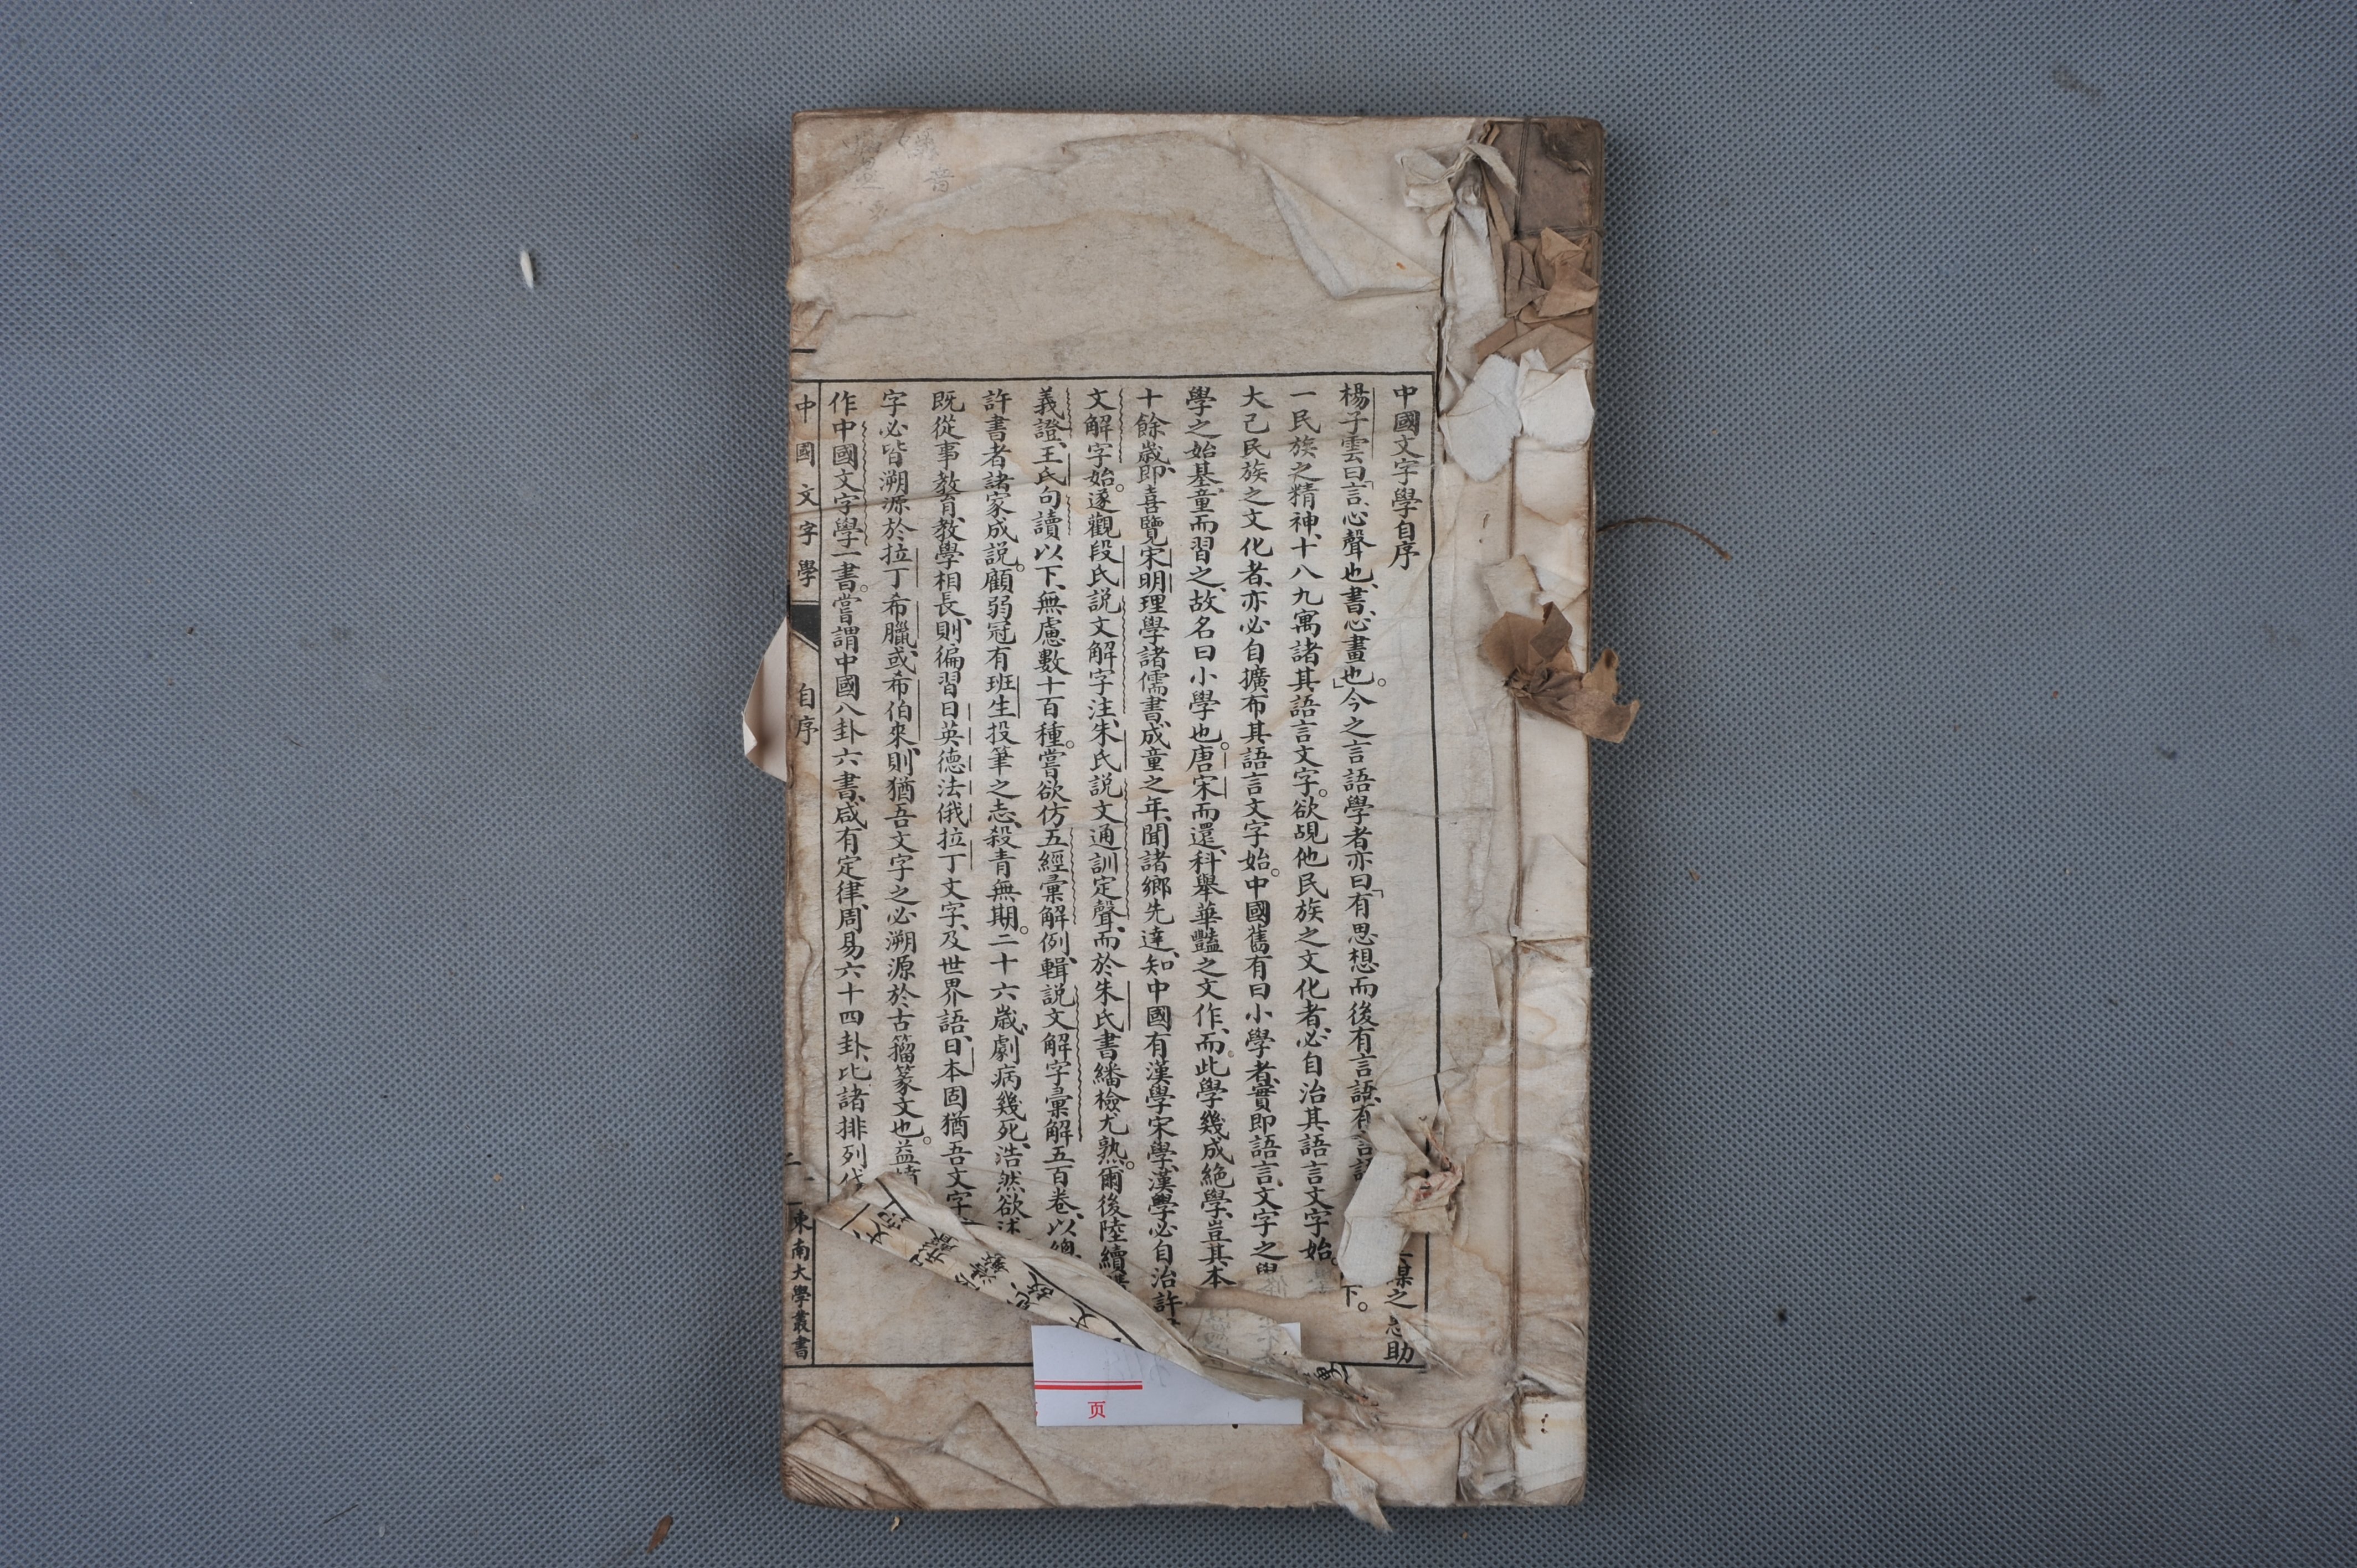 中國文字學自序
楊子雲曰「言、心聲也、書、心畫也。」今之言語學者亦曰「有思想而後有言語、有言語
下。
一民族之精神、十八九寓諸其語言文字。欲覘他民族之文化者、必自治其語言文字始。
大己民族之文化者、亦必自擴布其語言文字始。中國舊有曰小學者、實即語言文字之學
學之始基、童而習之、故名曰小學也。唐宋而還、科舉華豔之文作、而此學幾成絕學、豈其本
十餘歲、即喜覽宋明理學諸儒書、成童之年、聞諸鄉先達、知中國有漢學宋學、漢學必自治許
文解字始。遂觀段氏說文解字注、朱氏說文通訓定聲、而於朱氏書繙檢尤熟。爾後陸續
義證、王氏句讀以下、無慮數十百種。嘗欲仿五經彙解例、輯說文解字彙解五百卷、以
許書者諸家成說。顧弱冠有班生投筆之志、殺青無期。二十六歲、劇病幾死、浩然欲
既從事教育、教學相長、則徧習日英德法俄拉丁文字、及世界語、日本固猶吾文字
字必皆溯源於拉丁希臘或希伯來、則猶吾文字之必溯源於古籀篆文也。益
作中國文字學一書。嘗謂中國八卦六書、咸有定律、周易六十四卦、比諸排列
中國文字學
自序
一
東南大學叢書
之
助
页